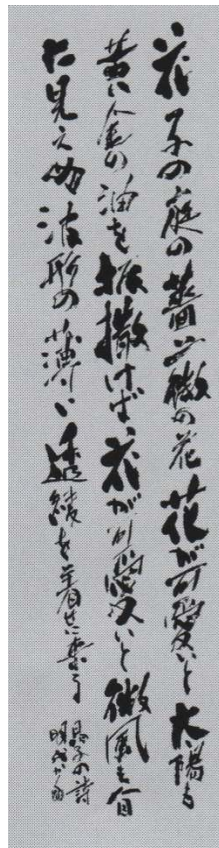 花子の庭の薔薇の花 花が可愛いと太陽も
黄い金の油を振撒けば 花が可愛いと微風も目
に見えぬ波形の薄い透綾を着せに来る
晶子の詩